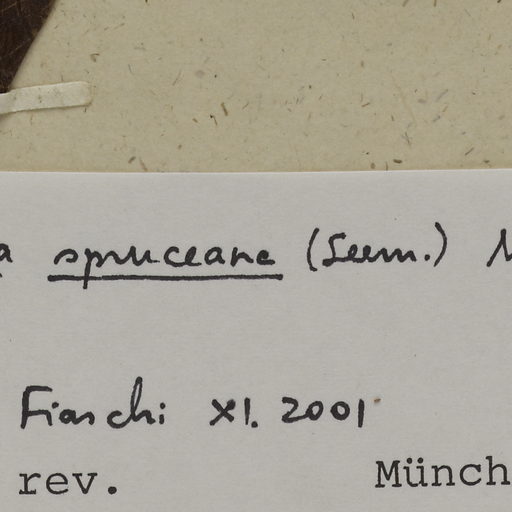 a spruceana (Seem.) M
Fiaschi XI. 2001
rev. Münch